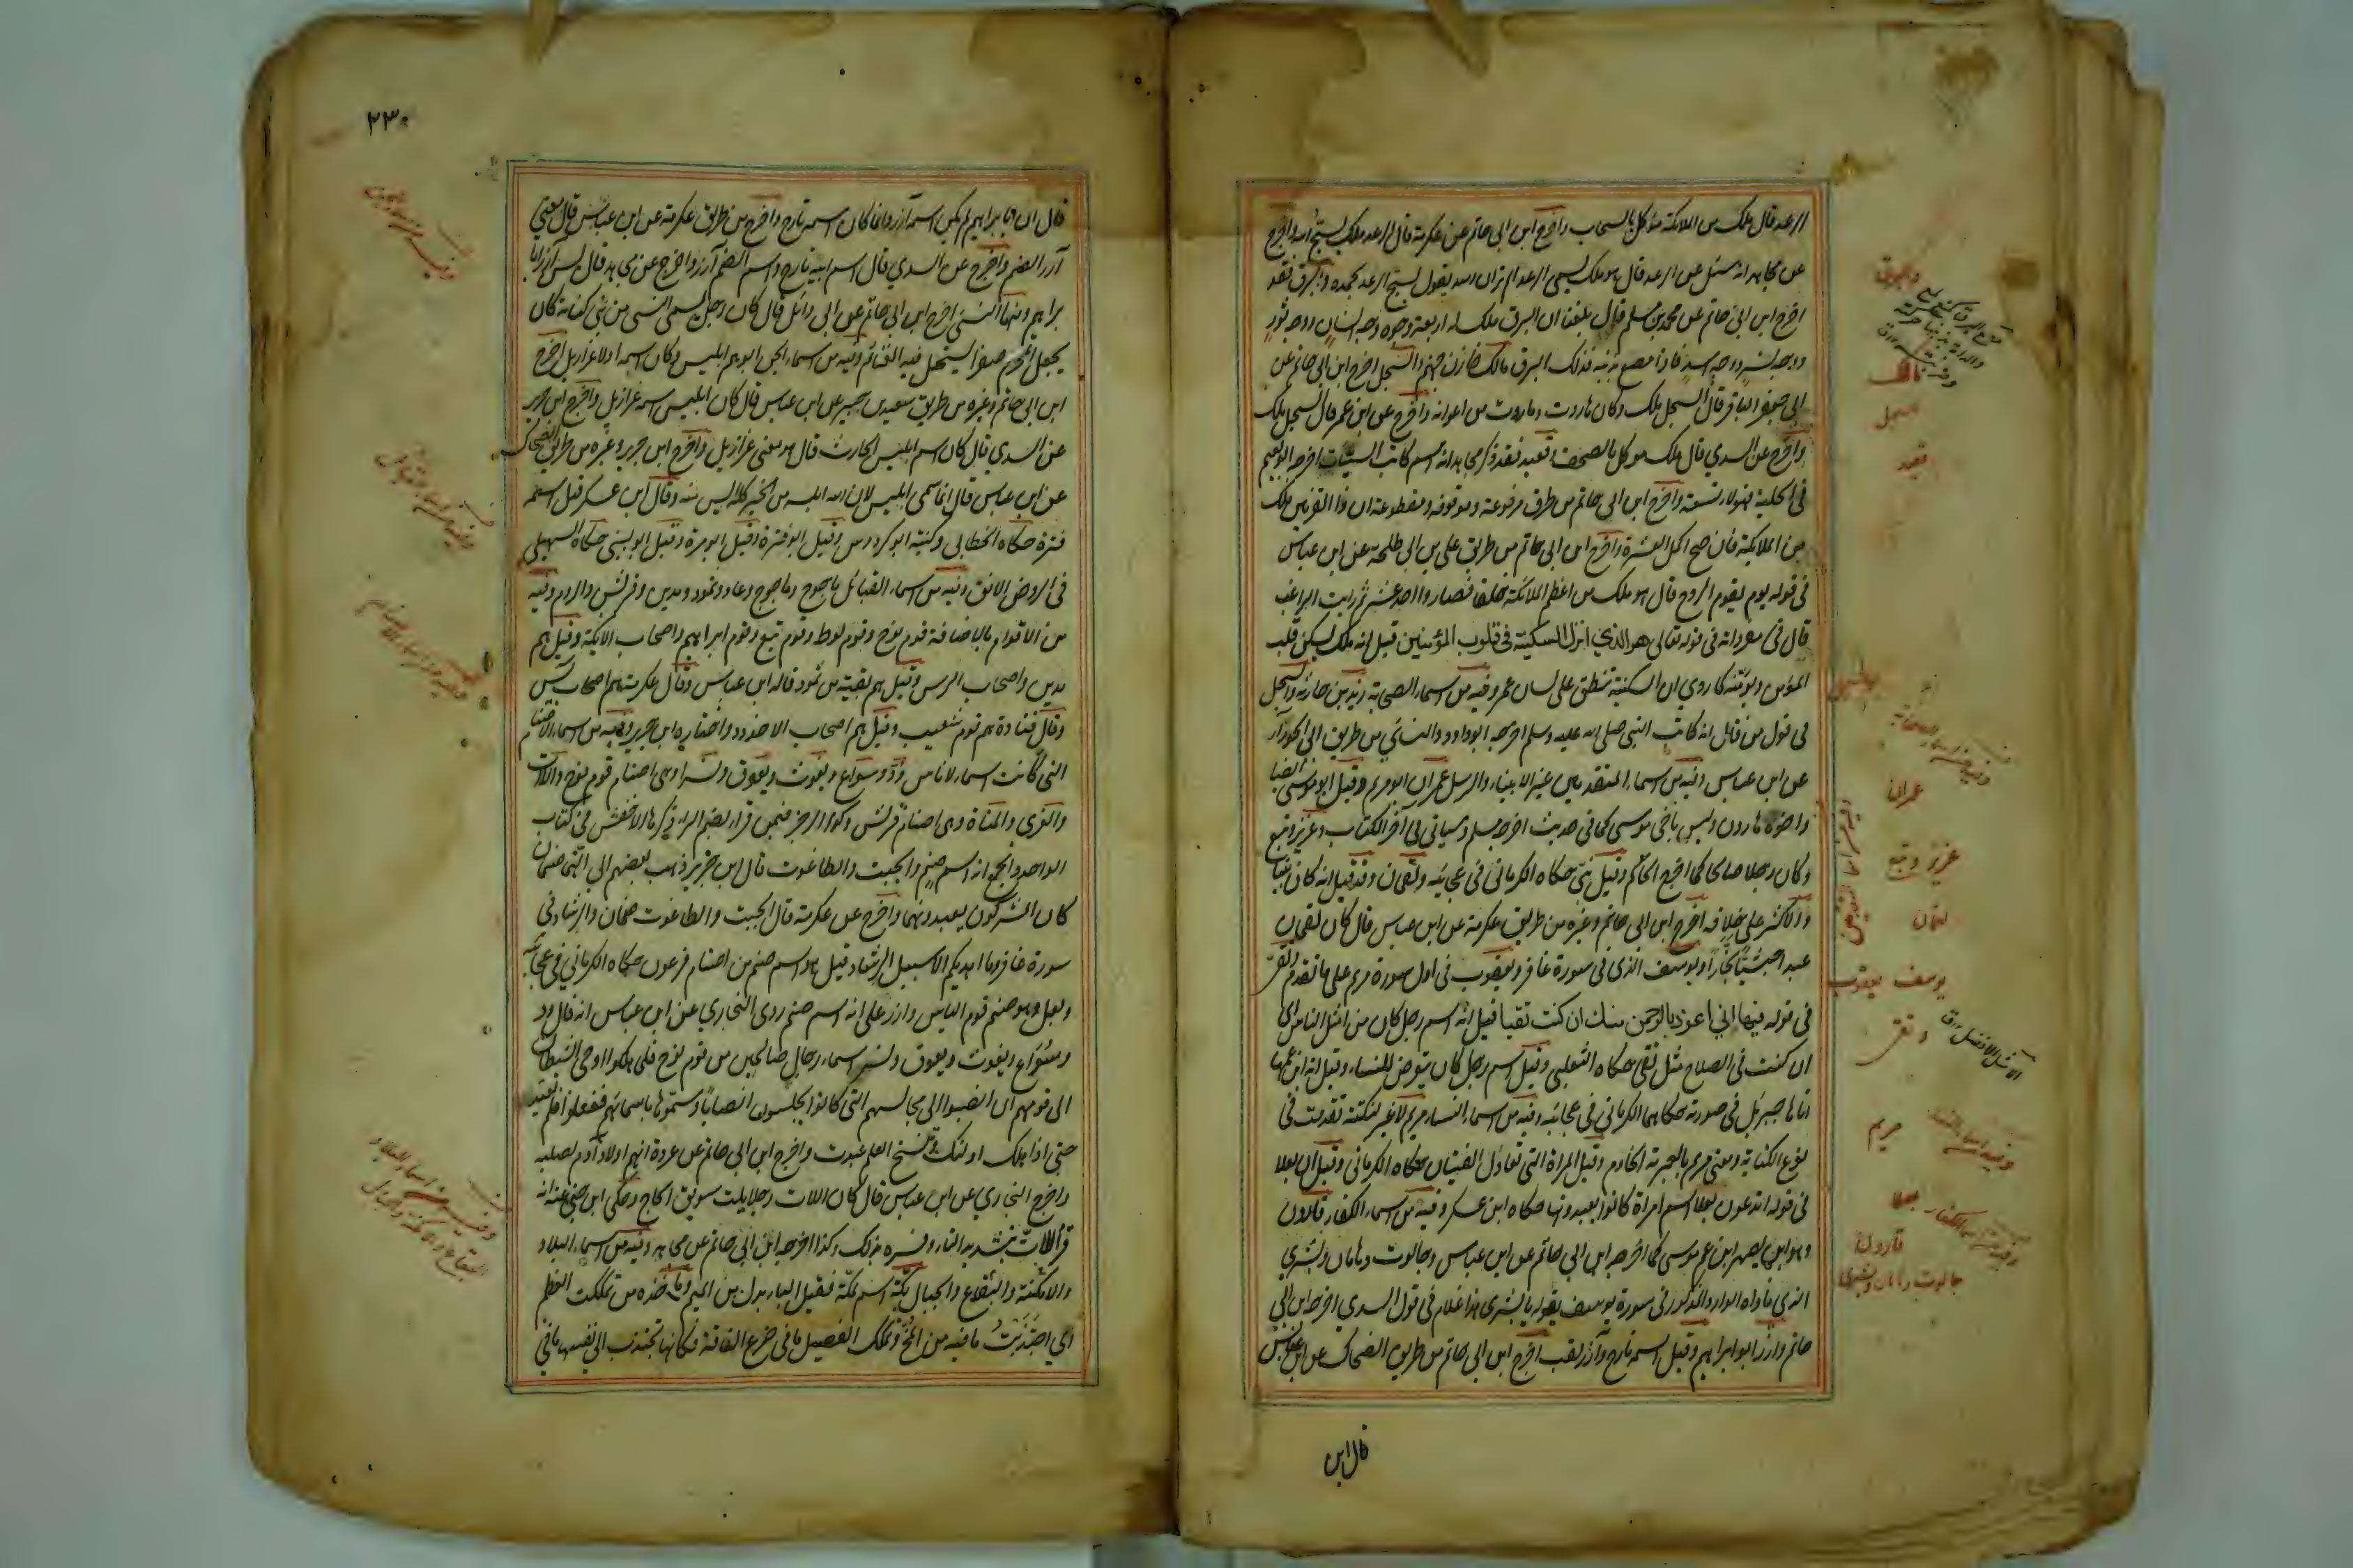 الرعد قال ملك من الملائكة موكل بالسحاب واخرج ابن ابي حاتم عن عكرمة قال الرعد ملك يسبح الله واخرج
عن مجاهد انه سئل عن الرعد قال هو ملك يسمى الرعد الم تر ان الله يقول يسبح الرعد بحمده والبرق فقد
اخرج ابن ابي حاتم عن محمد بن مسلم قال بلغنا ان البرق ملك له اربعة وجوه وجه انسان ووجه ثور
ووجه نسر ووجه اسد فاذا مصع بذنبه فذلك البرق مالك خازن جهنم والسجل اخرج ابن ابي حاتم عن
ابي جعفر الباقر قال السجل ملك وكان هاروت وماروت من اعوانه واخرج عن ابن عمر قال السجل ملك
واخرج عن السدي قال ملك موكل بالصحف وقعيد فقد ذكر مجاهد انه اسم كاتب السيئات اخرجه ابو نعيم
في الحلية فهؤلاء تسعة واخرج ابن ابي حاتم من طرق مرفوعة وموقوفة ومقطوعة ان ذا القرنين ملك
من الملائكة فان صح اكمل العشرة واخرج ابن ابي حاتم من طريق علي بن ابي طلحة عن ابن عباس
في قوله يوم يقوم الروح قال هو ملك من اعظم الملائكة خلقا فصاروا احد عشر ثم رايت الراغب
قال في مفرداته في قوله تعالى هو الذي انزل السكينة في قلوب المؤمنين قيل انه ملك يسكن قلب
المؤمن ويؤمنه كما روي ان السكينة تنطق على لسان عمر وفيه من اسماء الصحابة زيد بن حارثة والسجل
في قول من قال انه كاتب النبي صلى الله عليه وسلم اخرجه ابو داود والنسائي من طريق ابي الجوزاء
عن ابن عباس وفيه من اسماء المتقدمين غير الانبياء والرسل عمران ابو مريم وقيل ابو موسى ايضا
واخوه هارون وليس باخي موسى كما في حديث اخرجه مسلم وسياتي في آخر الكتاب وعزير وتبع
وكان رجلا صالحا كما اخرج الحاكم وقيل نبي حكاه الكرماني في عجائبه ولقمان وقد قيل انه كان نبيا
والاكثر على خلافه اخرج ابن ابي حاتم وغيره من طريق عكرمة عن ابن عباس قال كان لقمان
عبدا حبشيا نجارا ويوسف الذي في سورة غافر ويعقوب في اول سورة مريم على ما تقدم وتقي
في قوله فيها اني اعوذ بالرحمن منك ان كنت تقيا قيل انه اسم رجل كان من امثل الناس اي
ان كنت في الصلاح مثل تقي حكاه الثعلبي وقيل اسم رجل كان يتعرض للنساء وقيل انه ابن عمها
اتاها جبريل في صورته حكاهما الكرماني في عجائبه وفيه من اسماء النساء مريم لا غير لنكتة تقدمت في
نوع الكناية ومعنى مريم بالعبرية الخادم وقيل المراة التي تغازل الفتيان حكاه الكرماني وقيل ان بعلا
في قوله اتدعون بعلا اسم امراة كانوا يعبدونها حكاه ابن عسكر وفيه من اسماء الكفار قارون
وهو ابن يصهر ابن عم موسى كما اخرجه ابن ابي حاتم عن ابن عباس وجالوت وهامان وبشرى
الذي ناداه الوارد المذكور في سورة يوسف بقوله يا بشرى هذا غلام في قول السدي اخرجه ابن ابي
حاتم وآزر ابو ابراهيم وقيل اسمه تارح وآزر لقب اخرج ابن ابي حاتم من طريق الضحاك عن ابن عباس
قال ان
والبرق
مالك
سجل
قعيد
وفيه من اسماء الصحابة
عمران
عزير وتبع
لقمان
يوسف يعقوب
وتقي
مريم
وفيه من اسماء النساء
وفيه من اسماء الكفار
قارون
جالوت هامان وبشرى
٢٣٠
قال ان ابا ابراهيم لم يكن اسمه آزر وانما كان اسمه تارح واخرج من طريق عكرمة عن ابن عباس قال معنى
آزر الصنم واخرج عن السدي قال اسم ابيه تارح واسم الصنم آزر واخرج عن مجاهد قال ليس آزر ابا
ابراهيم ومنها النسئ اخرج ابن ابي حاتم عن ابي وائل قال كان رجل يسمى النسئ من بني كنانة كان
يجعل المحرم صفرا يستحل فيه الغنائم وفيه من اسماء الجن ابوهم ابليس وكان اسمه اولا عزازيل اخرج
ابن ابي حاتم وغيره من طريق سعيد بن جبير عن ابن عباس قال كان ابليس اسمه عزازيل واخرج ابن جرير
عن السدي قال كان اسم ابليس الحارث قال هو معنى عزازيل واخرج ابن جرير وغيره من طريق الضحاك
عن ابن عباس قال انما سمي ابليس لان الله ابلسه من الخير كله آيسه منه وقال ابن عسكر قيل اسمه
قترة حكاه الخطابي وكنيته ابو كردوس وقيل ابو قترة وقيل ابو مرة وقيل ابو لبينى حكاه السهيلي
في الروض الانف وفيه من اسماء القبائل ياجوج وماجوج وعاد وثمود ومدين وقريش والروم وفيه
من الاقوام بالاضافة قوم نوح وقوم لوط وقوم تبع وقوم ابراهيم واصحاب الايكة وقيل هم
مدين واصحاب الرس وقيل هم بقية من ثمود قاله ابن عباس وقال عكرمة هم اصحاب يس
وقال قتادة هم قوم شعيب وقيل هم اصحاب الاخدود واختاره ابن جرير وفيه من اسماء الاصنام
التي كانت اسماء لاناس ود وسواع ويغوث ويعوق ونسر وهي اصنام قوم نوح واللات
والعزى والمناة وهي اصنام قريش وكذا الرجز فيمن قراه بضم الراء ذكرها الاخفش في كتاب
الواحد والجمع انه اسم صنم والجبت والطاغوت قال ابن جرير ذهب بعضهم الى انهما صنمان
كان المشركون يعبدونهما واخرج عن عكرمة قال الجبت والطاغوت صنمان والرشاد في
سورة غافر وما اهديكم الا سبيل الرشاد قيل هو اسم صنم من اصنام فرعون حكاه الكرماني في عجائبه
وبعل وهو صنم قوم الياس وآزر على انه اسم صنم روى البخاري عن ابن عباس انه قال ود
وسواع ويغوث ويعوق ونسر اسماء رجال صالحين من قوم نوح فلما هلكوا اوحى الشيطان
الى قومهم ان انصبوا الى مجالسهم التي كانوا يجلسون انصابا وسموها باسمائهم ففعلوا فلم تعبد
حتى اذا هلك اولئك وتنسخ العلم عبدت واخرج ابن ابي حاتم عن عروة انهم اولاد آدم لصلبه
واخرج البخاري عن ابن عباس قال كان اللات رجلا يلت سويق الحاج وحكى ابن جني عنه انه
قرا اللات بتشديد التاء وفسره بذلك وكذا اخرجه ابن ابي حاتم عن مجاهد وفيه من اسماء البلاد
والامكنة والبقاع والجبال بكة اسم مكة فقيل الباء بدل من الميم وماخذه من تمككت العظم
اي اجتذبت ما فيه من المخ وتمكك الفصيل ما في ضرع الناقة فكانها تجتذب الى نفسها ما في